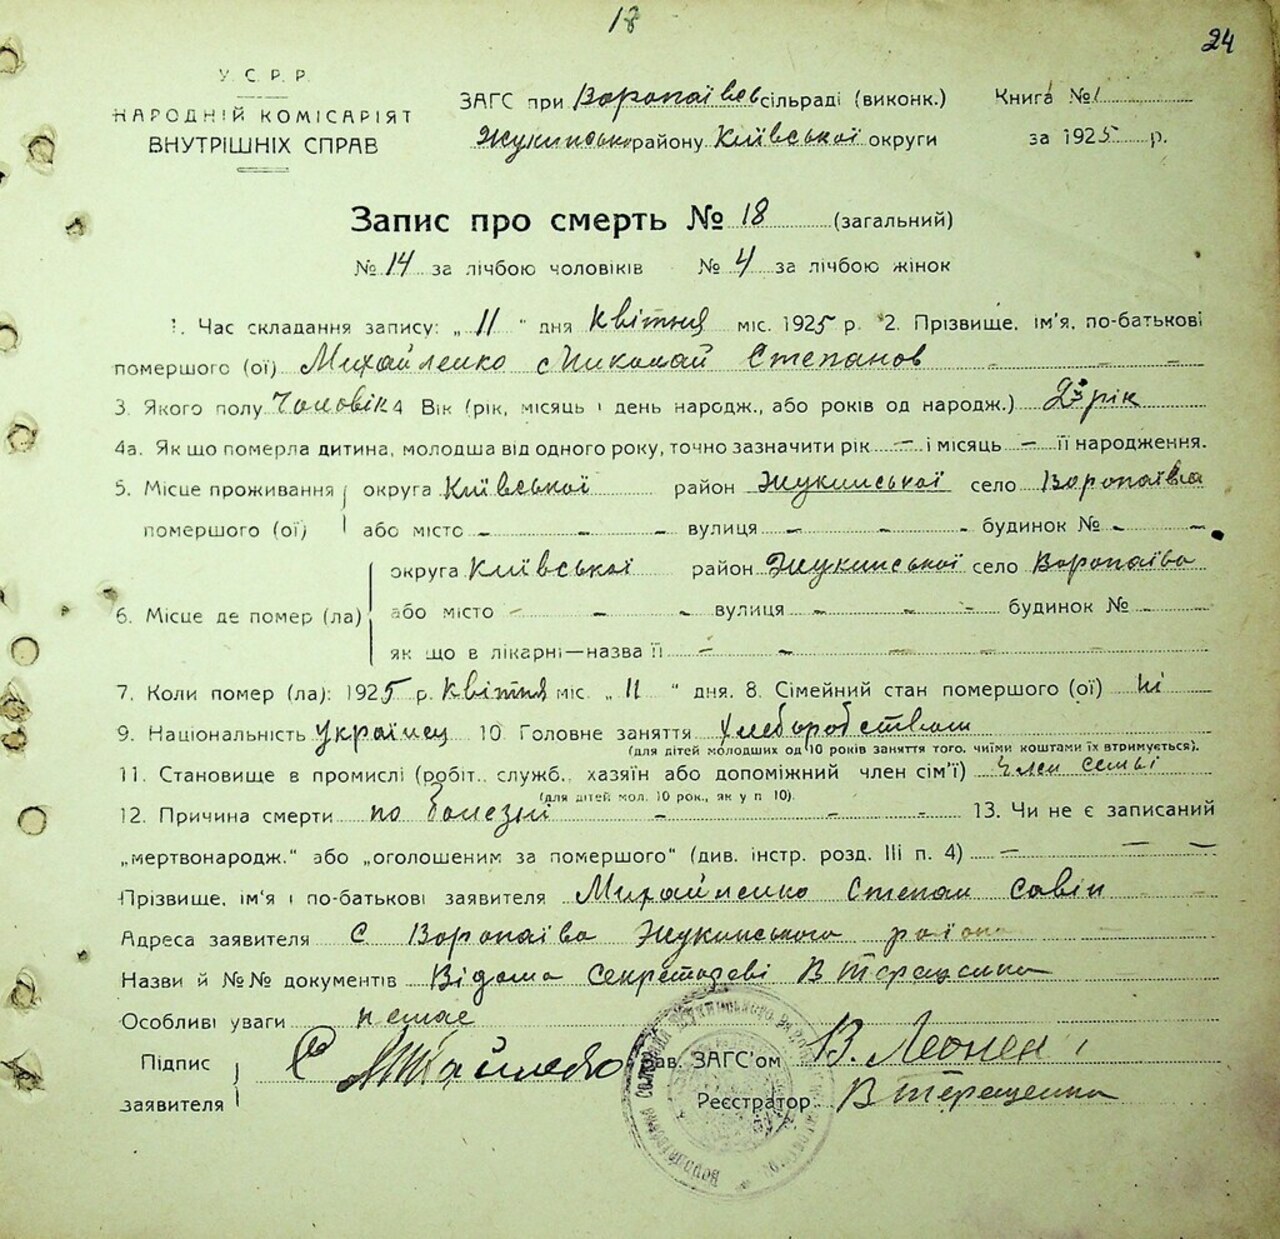 18
24
У.С.Р.Р.
НАРОДНІЙ КОМІСАРІЯТ
ВНУТРІШНІХ СПРАВ
ЗАГС при Воропаївсв сільраді (виконк.) Книга №1
Жукинсько району Київської округи за 1925 р.
Запис про смерть № 18 (загальний)
№ 14 за лічбою чоловіків № 4 за лічбою жінок
1. Час складання запису: „11" дня Квітня міс. 1925 р. 2. Прізвище, ім'я, по-батькові
помершого (ої) Михайленко Николай Степанов - - -
3. Якого полу Чоловік 4 Вік (рік, місяць і день народж., або років од народж.) 2й рік
4а. Як що померла дитина, молодша від одного року, точно зазначити рік - і місяць - її народження.
5. Місце проживання округа Київської район Жукинської село Воропаївка
помершого (ої) або місто - - - вулиця - - - будинок № - -
округа Київської район Жукинської село Воропаїва
6. Місце де помер (ла) або місто - - - вулиця - - - будинок № - -
як що в лікарні—назва її - - - - -
7. Коли помер (ла): 1925 р. Квітня міс. „11" дня. 8. Сімейний стан помершого (ої) ні
9. Національність Українец 10. Головне заняття Хлеборобством
(для дітей молодших од 10 років заняття того, чиїми коштами їх втримується).
11. Становище в промислі (робіт., служб., хазяїн або допоміжний член сім'ї) Член семьі
(для дітей мол. 10 рок., як у п 10).
12. Причина смерти по болезні - - - 13. Чи не є записаний
„мертвонародж." або „оголошеним за помершого" (див. інстр. розд. III п. 4) - - -
Прізвище, ім'я і по-батькові заявителя Михайленко Степан Савін
Адреса заявителя С Воропаїва Жукинського району
Назви й №№ документів Відома Секретареві В Терещенка
Особливі уваги немає
Підпис
заявителя
Зав. ЗАГС'ом В. Леонен
Реєстратор В Терещенка